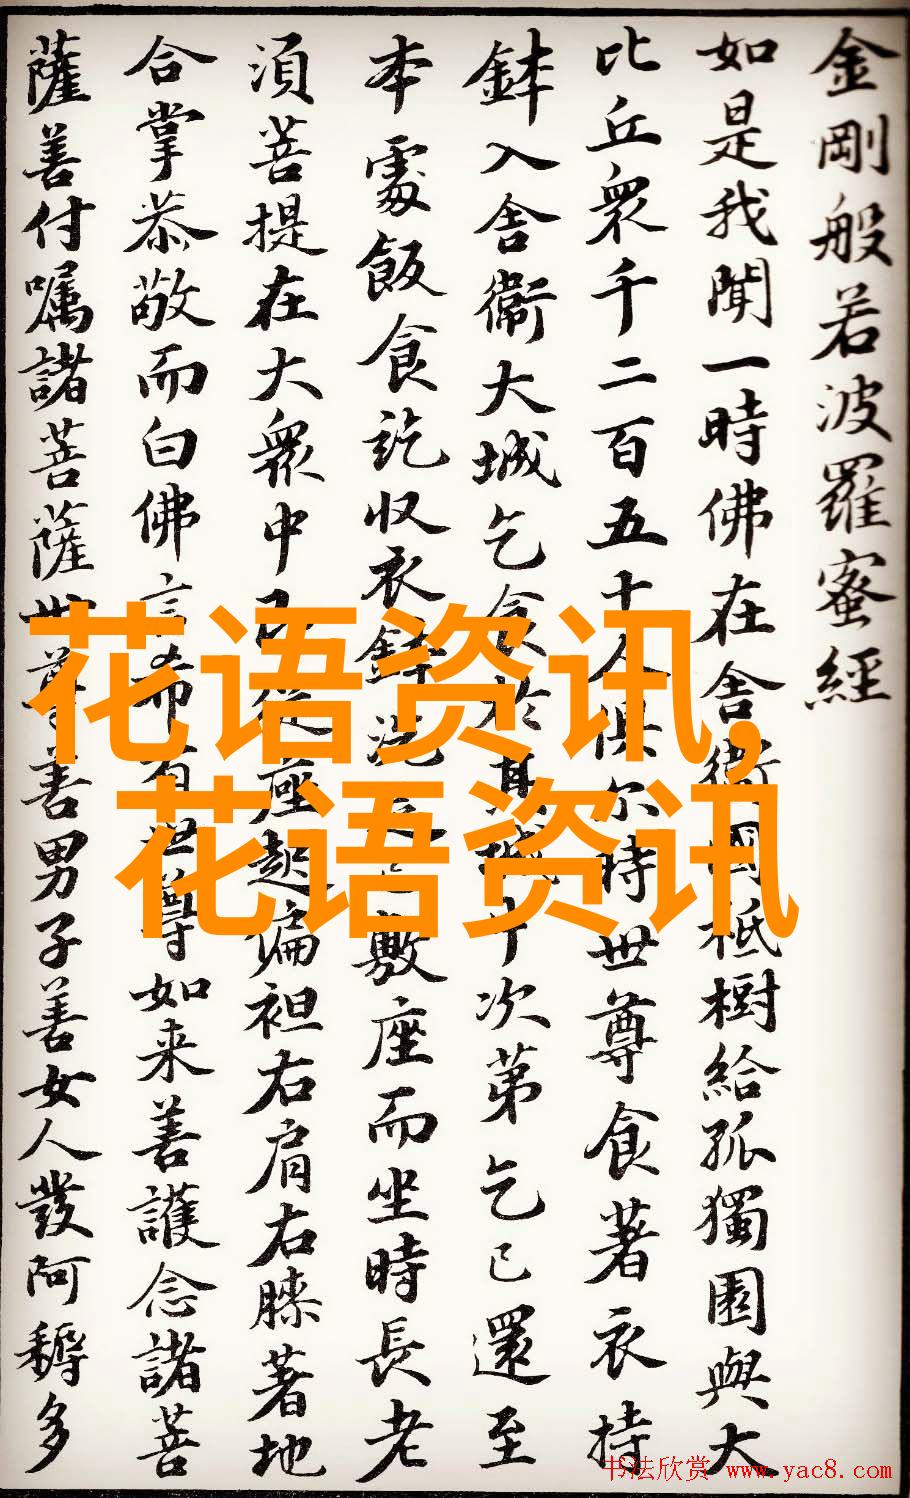 金剛般若波羅蜜經
如是我聞一時佛在舍衛國祇樹給孤獨園與大
比丘眾千二百五十人俱尔時世尊食著衣持
鉢入舍衛大城乞食於其城中次第乞已還至
本處飯食訖收衣鉢洗足已敷座而坐時長老
須菩提在大眾中即從座起偏袒右肩右膝著地
合掌恭敬而白佛言希有世尊如来善護念諸菩
薩善付嘱諸菩薩世尊善男子善女人發阿耨多
花语资讯,
花语资讯
书法欣赏 www.yac8.com